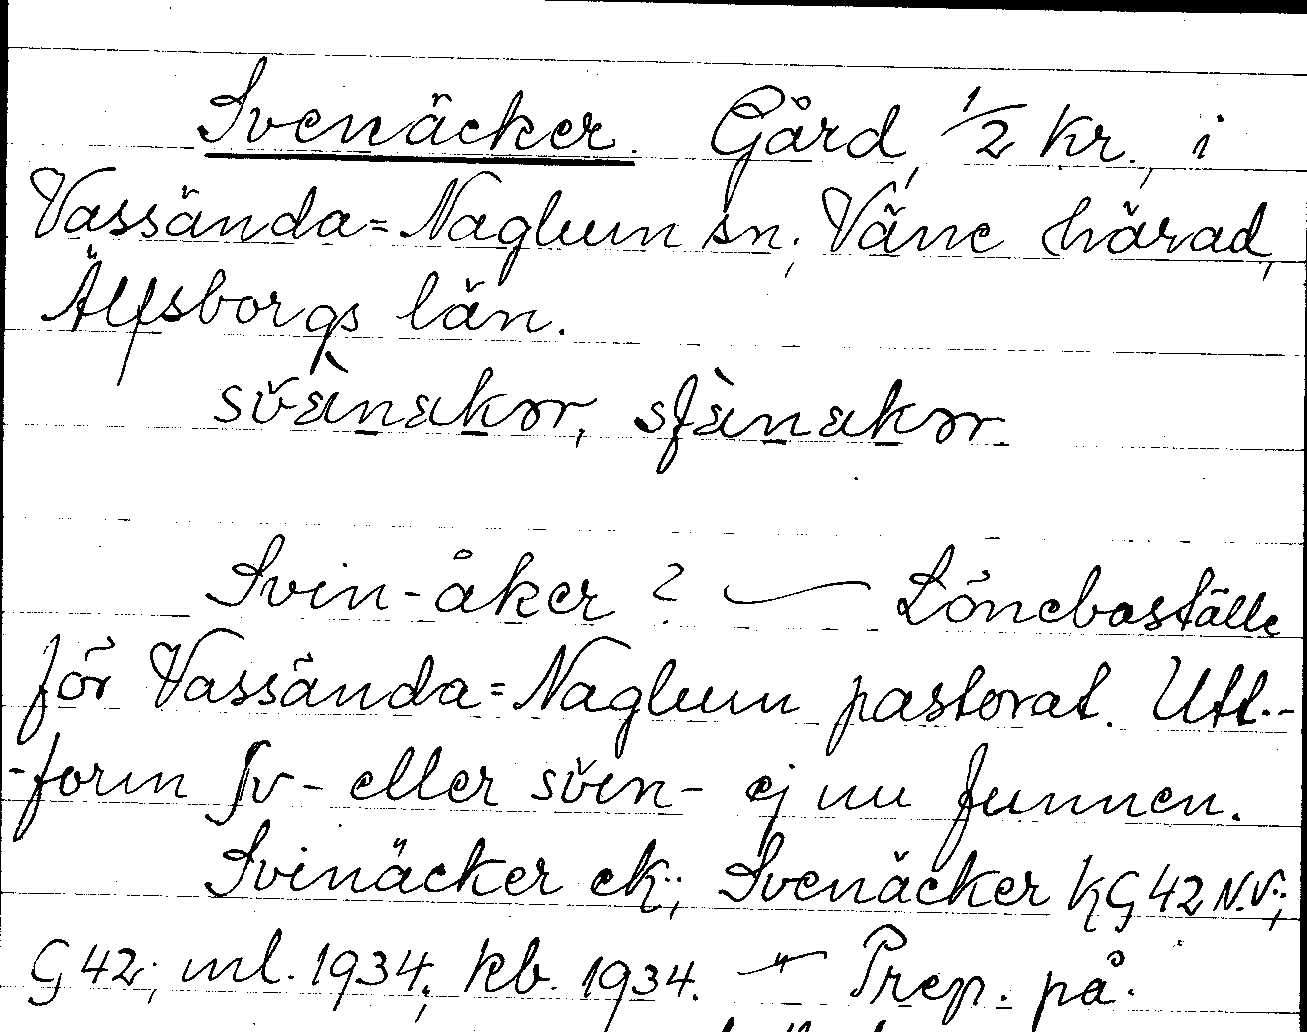 Svenäcker. Gård, 1/2 kr., i
Vassända=Naglum sn, Väne härad,
Älfsborgs län.
svä̀nakər, sfä̀nakər.
Svin-åker? — Löneboställe
för Vassända=Naglum pastorat. Utt.-
-form fv- eller svin- ej nu funnen.
Svinäcker ek.; Svenäcker KG 42 N.V.;
G 42; ml. 1934; kb. 1934. — Prep. på.